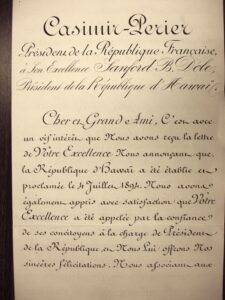 Casimir-Perier
Président de la République Française,
à Son Excellence Sanford B. Dole,
Président de la République d'Hawaï,
Cher et Grand Ami, C'est avec
un vif intérêt que Nous avons reçu la lettre
de Votre Excellence Nous annonçant que
la République d'Hawaï a été établie et
proclamée le 4 Juillet 1894. Nous avons
également appris avec satisfaction que Votre
Excellence a été appelée par la confiance
de ses concitoyens à la charge de Président
de la République et Nous Lui offrons Nos
sincères félicitations. Nous associant aux